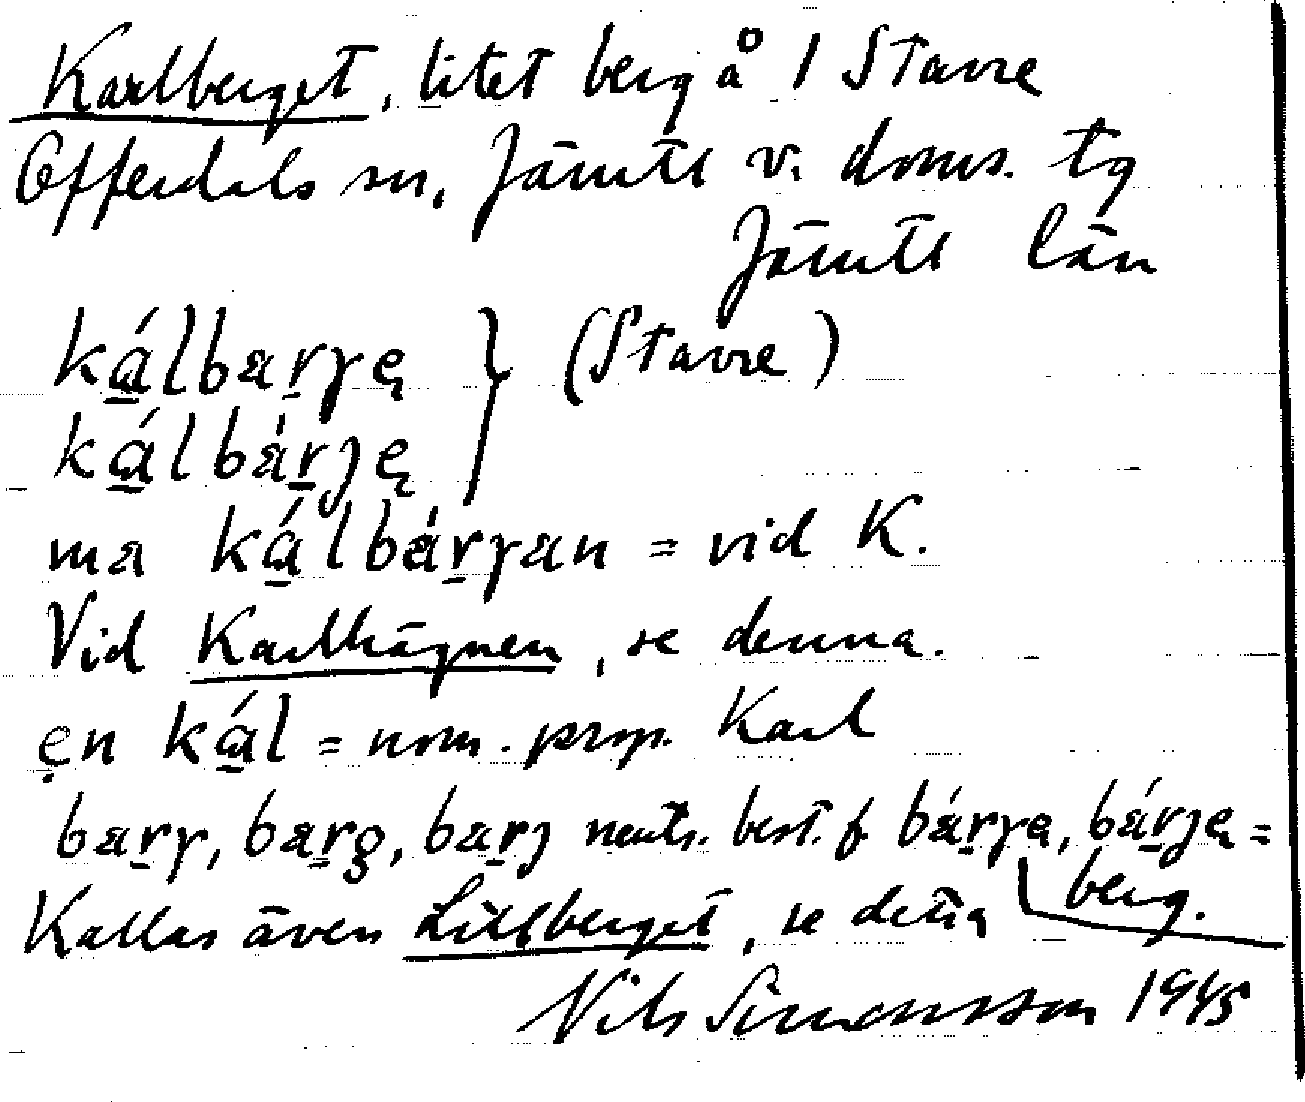 Karlberget, litet berg å 1 Stavre
Offerdals sn, Jämtl v. doms. tg
Jämtl län
ká̱lbaṟγę } (Stavre)
ká̱lbáṟȷę
ma ká̱lbáṟγan = vid K.
Vid Karlhägnen, se denna.
ęn ká̱l = nom. prop. Karl
baṟγ, baṟg, baṟȷ neutr. best. f báṟγę, báṟȷę =
berg.
Kallas även Litlberget, se detta
Nils Simonsson 1945